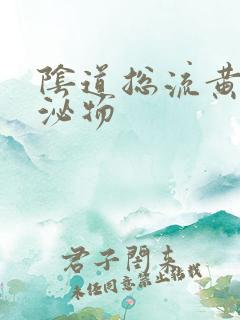 陰道總流黃
泌物
君子閣来
未经同意禁止转载